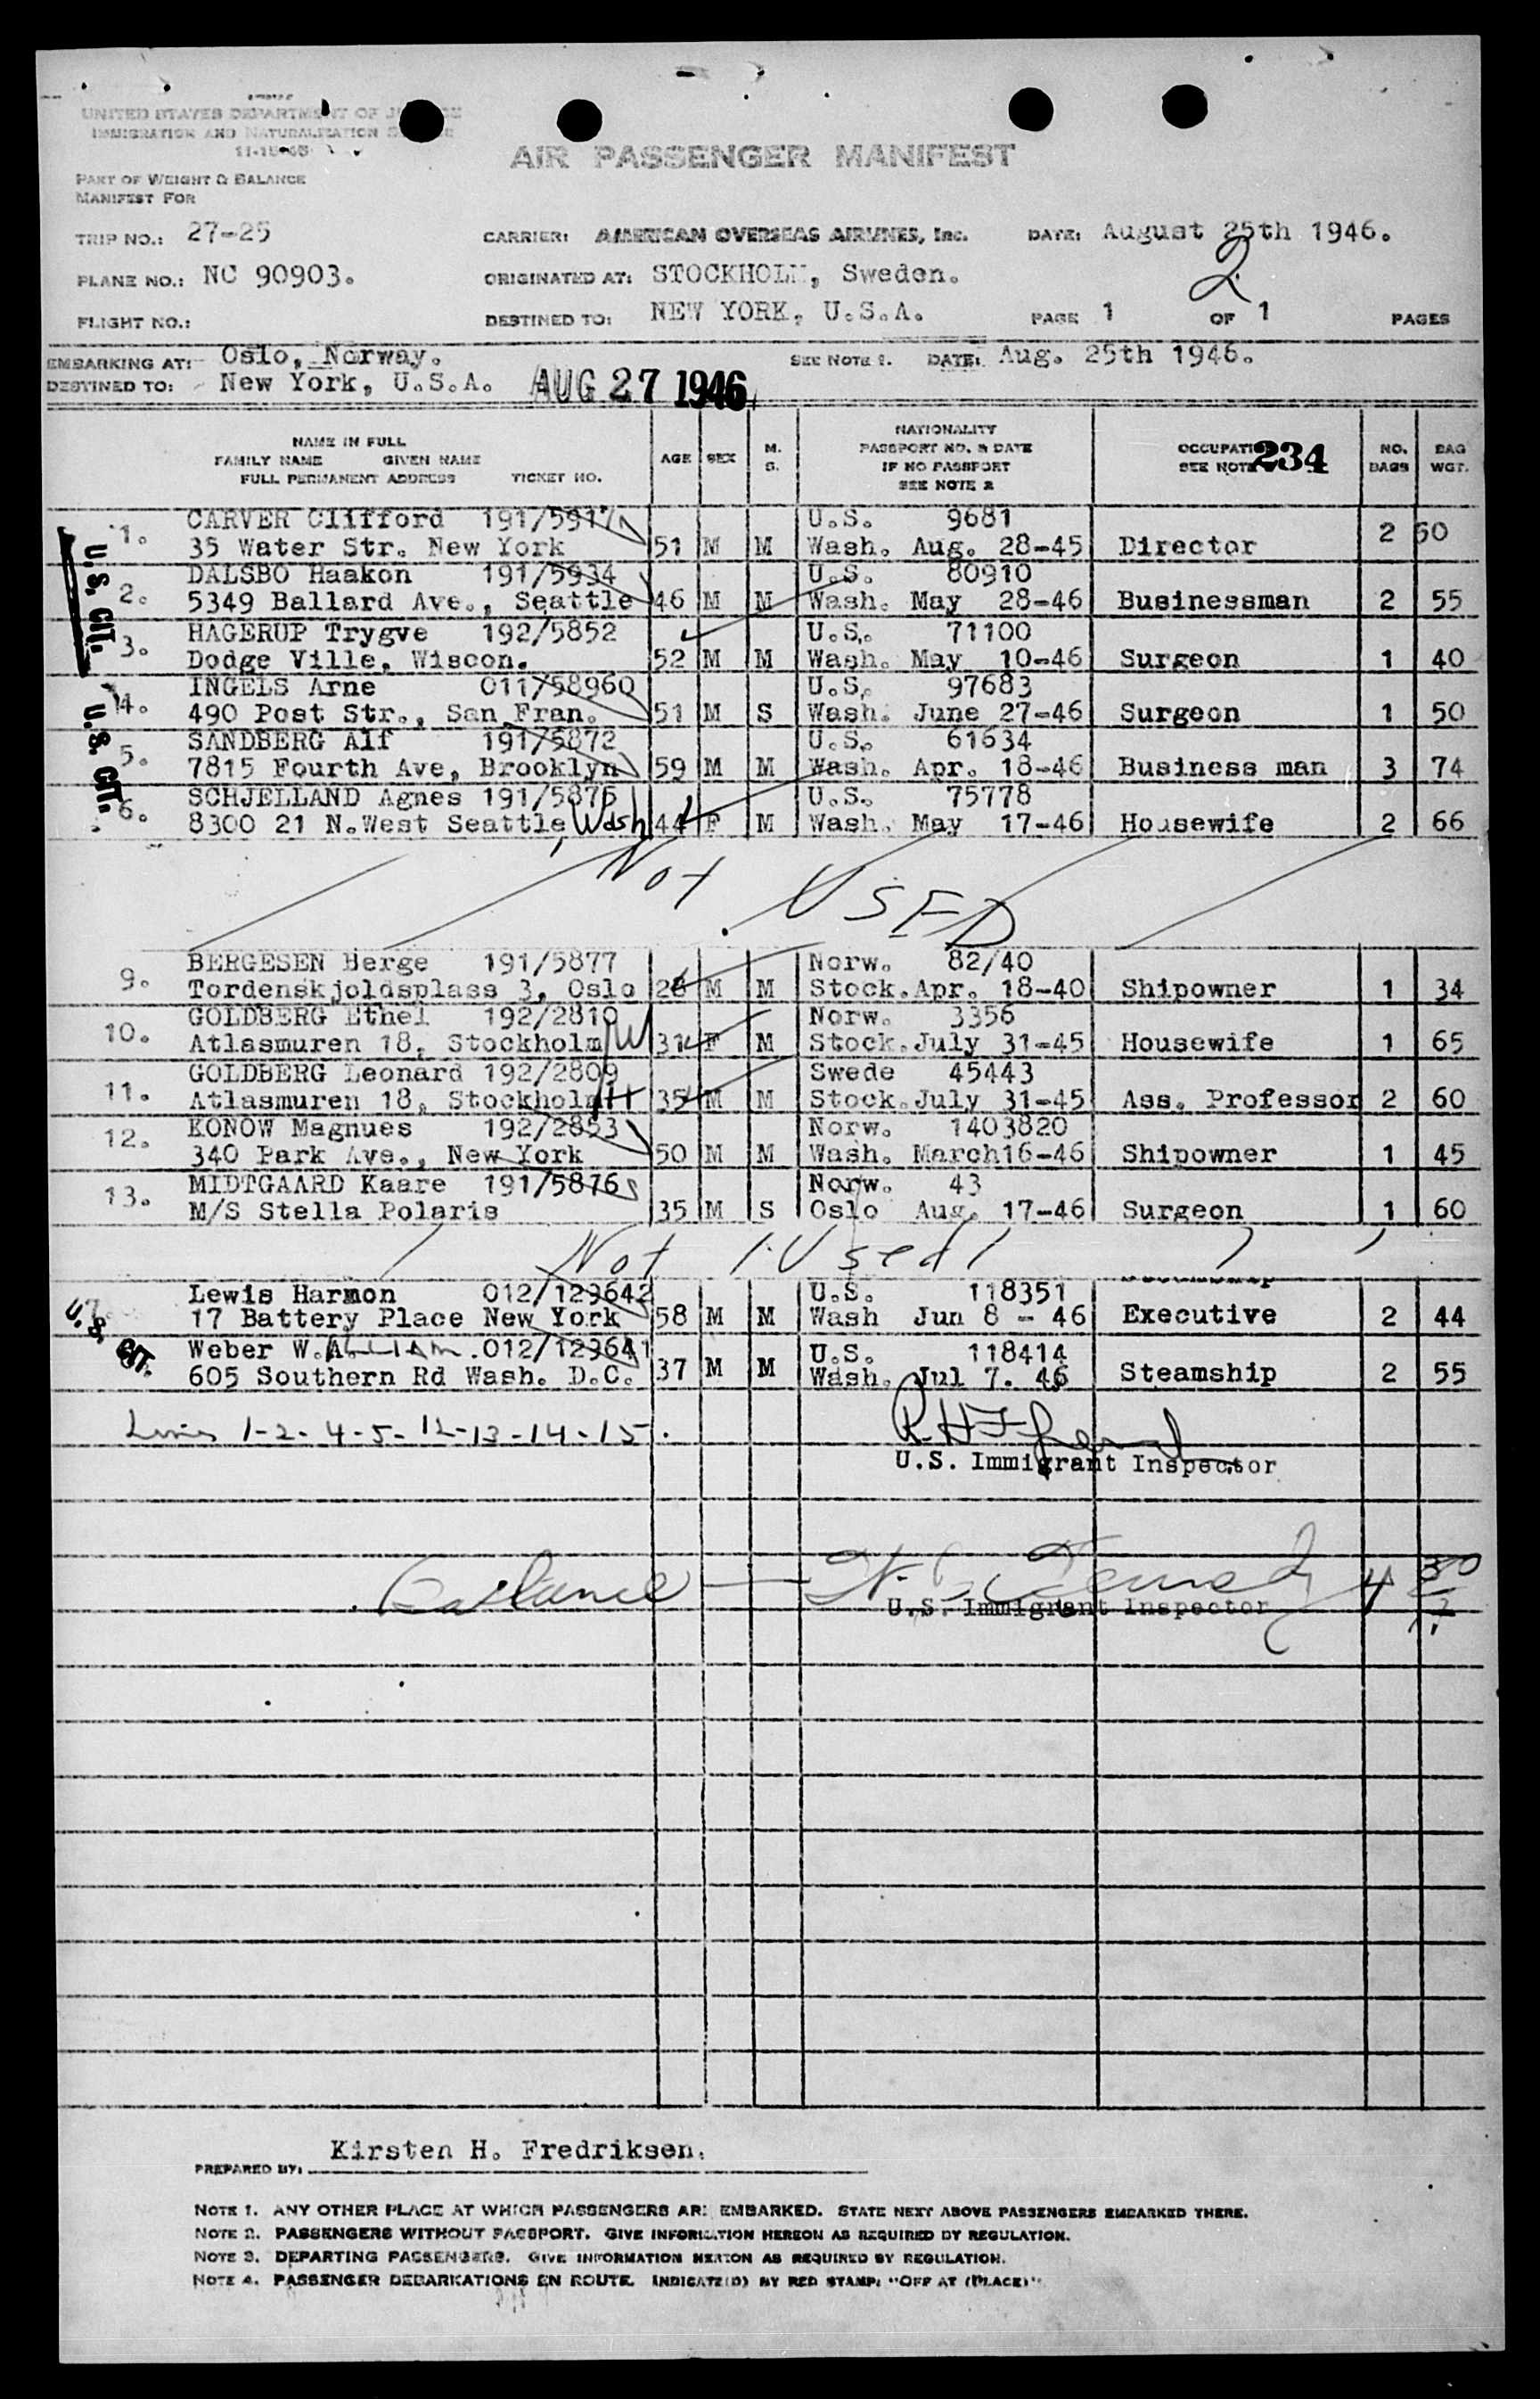 UNITED STATES DEPARTMENT OF JUSTICE
IMMIGRATION AND NATURALIZATION SERVICE
11-15-45
AIR PASSENGER MANIFEST
PART OF WEIGHT & BALANCE
MANIFEST FOR
TRIP NO.: 27-25 CARRIER: AMERICAN OVERSEAS AIRLINES, Inc. DATE: August 25th 1946.
PLANE NO.: NC 90903. ORIGINATED AT: STOCKHOLM, Sweden. 2
FLIGHT NO.: DESTINED TO: NEW YORK, U.S.A. PAGE 1 OF 1 PAGES
EMBARKING AT: Oslo, Norway. SEE NOTE 1. DATE: Aug. 25th 1946.
DESTINED TO: New York, U.S.A. AUG 27 1946
NAME IN FULL
FAMILY NAME GIVEN NAME
FULL PERMANENT ADDRESS TICKET NO. AGE SEX M. S. NATIONALITY
PASSPORT NO. & DATE
IF NO PASSPORT
SEE NOTE 2 OCCUPATION
SEE NOTE 234 NO.
BAGS BAG
WGT.
U.S. CIT.
1. CARVER Clifford 191/5917 U.S. 9681
35 Water Str. New York 51 M M Wash. Aug. 28-45 Director 2 50
2. DALSBO Haakon 191/5934 U.S. 80910
5349 Ballard Ave., Seattle 46 M M Wash. May 28-46 Businessman 2 55
3. HAGERUP Trygve 192/5852 U.S. 71100
Dodge Ville, Wiscon. 52 M M Wash. May 10-46 Surgeon 1 40
U.S. CIT.
4. INGELS Arne 011/58960 U.S. 97683
490 Post Str., San Fran. 51 M S Wash. June 27-46 Surgeon 1 50
5. SANDBERG Alf 191/5872 U.S. 61634
7815 Fourth Ave, Brooklyn 59 M M Wash. Apr. 18-46 Business man 3 74
6. SCHJELLAND Agnes 191/5875 U.S. 75778
8300 21 N.West Seattle, Wash 44 F M Wash. May 17-46 Housewife 2 66
Not USED
9. BERGESEN Berge 191/5877 Norw. 82/40
Tordenskjoldsplass 3, Oslo 28 M M Stock. Apr. 18-40 Shipowner 1 34
10. GOLDBERG Ethel 192/2810 Norw. 3356
Atlasmuren 18, Stockholm W 31 F M Stock. July 31-45 Housewife 1 65
11. GOLDBERG Leonard 192/2809 Swede 45443
Atlasmuren 18, Stockholm H 35 M M Stock. July 31-45 Ass. Professor 2 60
12. KONOW Magnues 192/2853 Norw. 1403820
340 Park Ave., New York 50 M M Wash. March16-46 Shipowner 1 45
13. MIDTGAARD Kaare 191/5876 Norw. 43
M/S Stella Polaris 35 M S Oslo Aug. 17-46 Surgeon 1 60
Not Used
U.S. CIT.
Lewis Harmon 012/123642 U.S. 118351
17 Battery Place New York 58 M M Wash Jun 8 - 46 Executive 2 44
Weber W.A. William. 012/123641 U.S. 118414
605 Southern Rd Wash. D.C. 37 M M Wash. Jul 7. 46 Steamship 2 55
Lines 1-2-4-5-12-13-14-15.
U.S. Immigrant Inspector
Balance
U.S. Immigrant Inspector
Kirsten H. Fredriksen.
PREPARED BY:
NOTE 1. ANY OTHER PLACE AT WHICH PASSENGERS ARE EMBARKED. STATE NEXT ABOVE PASSENGERS EMBARKED THERE.
NOTE 2. PASSENGERS WITHOUT PASSPORT. GIVE INFORMATION HEREON AS REQUIRED BY REGULATION.
NOTE 3. DEPARTING PASSENGERS. GIVE INFORMATION HEREON AS REQUIRED BY REGULATION.
NOTE 4. PASSENGER DEBARKATIONS EN ROUTE. INDICATE(D) BY RED STAMP: "OFF AT (PLACE)"